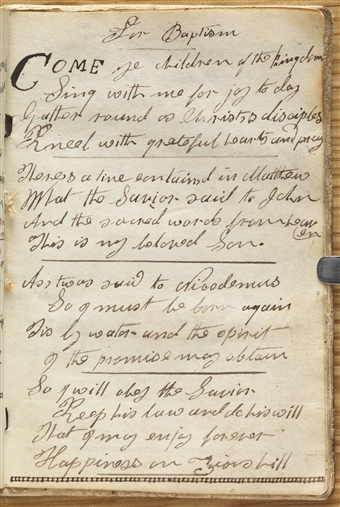 For Baptism
COME ye children of the kingdom
Sing with me for joy to day
Gather round as Christ's disciples
Kneel with grateful hearts and pray
Theres a line contained in Matthew
What the Savior said to John
And the sacred words from heaven
This is my beloved Son.
As twas said to Nicodemus
So I must be born again
Tis by water and the spirit
I the promise may obtain
So I will obey the Savior
Keep his law and do his will
That I may enjoy forever
Happiness on Zions hill